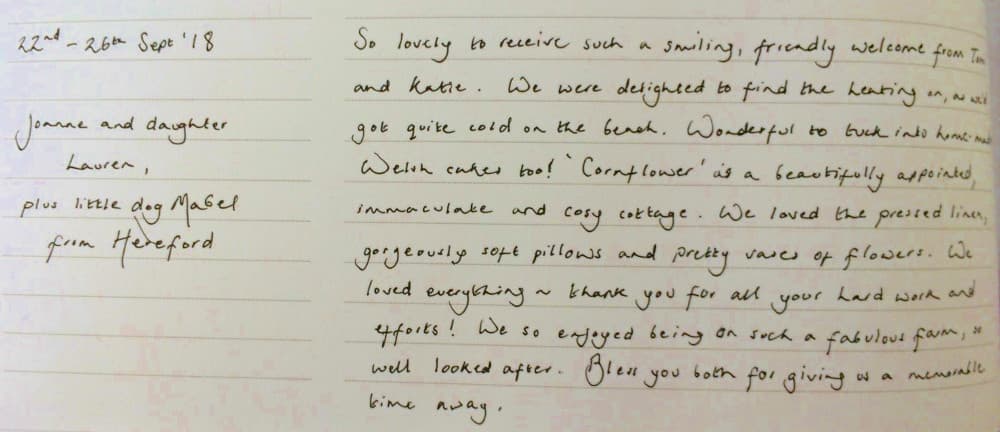 22nd - 26th Sept '18
Joanne and daughter
Lauren,
plus little dog Mabel
from Hereford
So lovely to receive such a smiling, friendly welcome from Tom
and Katie. We were delighted to find the heating on, as we'd
got quite cold on the beach. Wonderful to tuck into home-made
Welsh cakes too! 'Cornflower' is a beautifully appointed,
immaculate and cosy cottage. We loved the pressed linen,
gorgeously soft pillows and pretty vases of flowers. We
loved everything ~ thank you for all your hard work and
efforts! We so enjoyed being on such a fabulous farm, so
well looked after. Bless you both for giving us a memorable
time away.